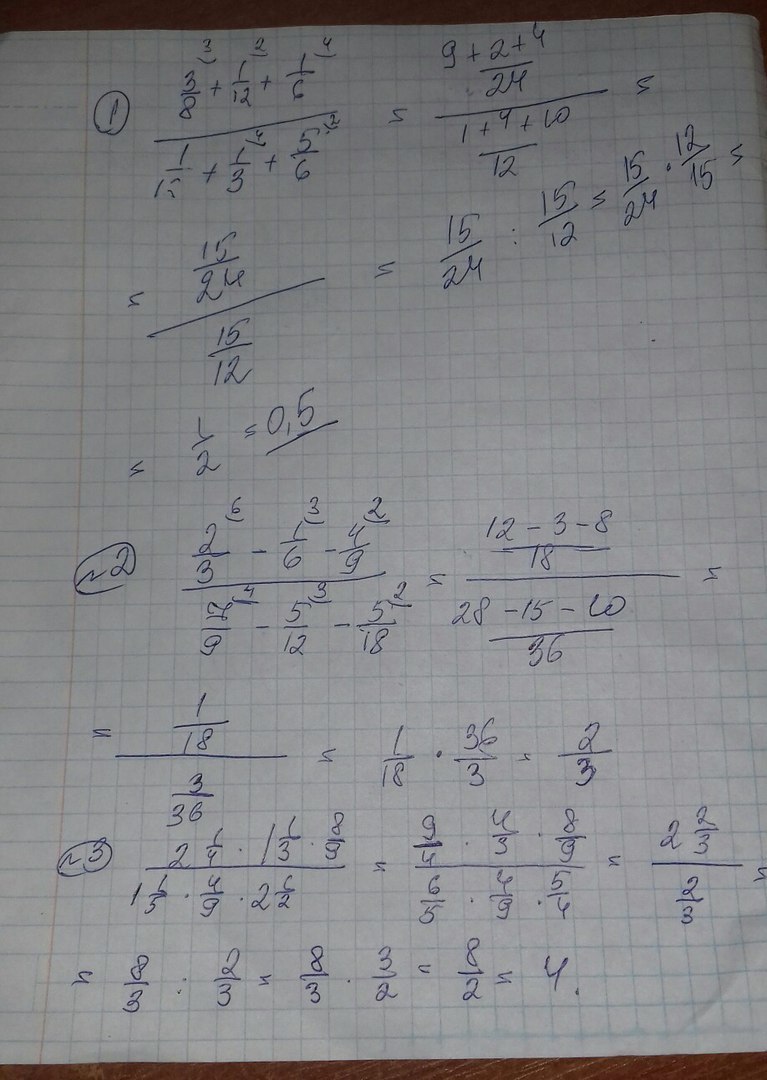 1) (3/8 + 1/12 + 1/6) / (1/12 + 1/3 + 5/6) = ((9 + 2 + 4)/24) / ((1 + 4 + 10)/12) =
= (15/24) / (15/12) = 15/24 : 15/12 = 15/24 · 12/15 =
= 1/2 = 0,5
№2 (2/3 - 1/6 - 4/9) / (7/9 - 5/12 - 5/18) = ((12 - 3 - 8)/18) / ((28 - 15 - 10)/36) =
= (1/18) / (3/36) = 1/18 · 36/3 = 2/3
№3 (2 1/4 · 1 1/3 · 8/9) / (1 1/5 · 4/9 · 2 1/2) = (9/4 · 4/3 · 8/9) / (6/5 · 4/9 · 5/4) = (2 2/3) / (2/3) =
= 8/3 : 2/3 = 8/3 · 3/2 = 8/2 = 4.